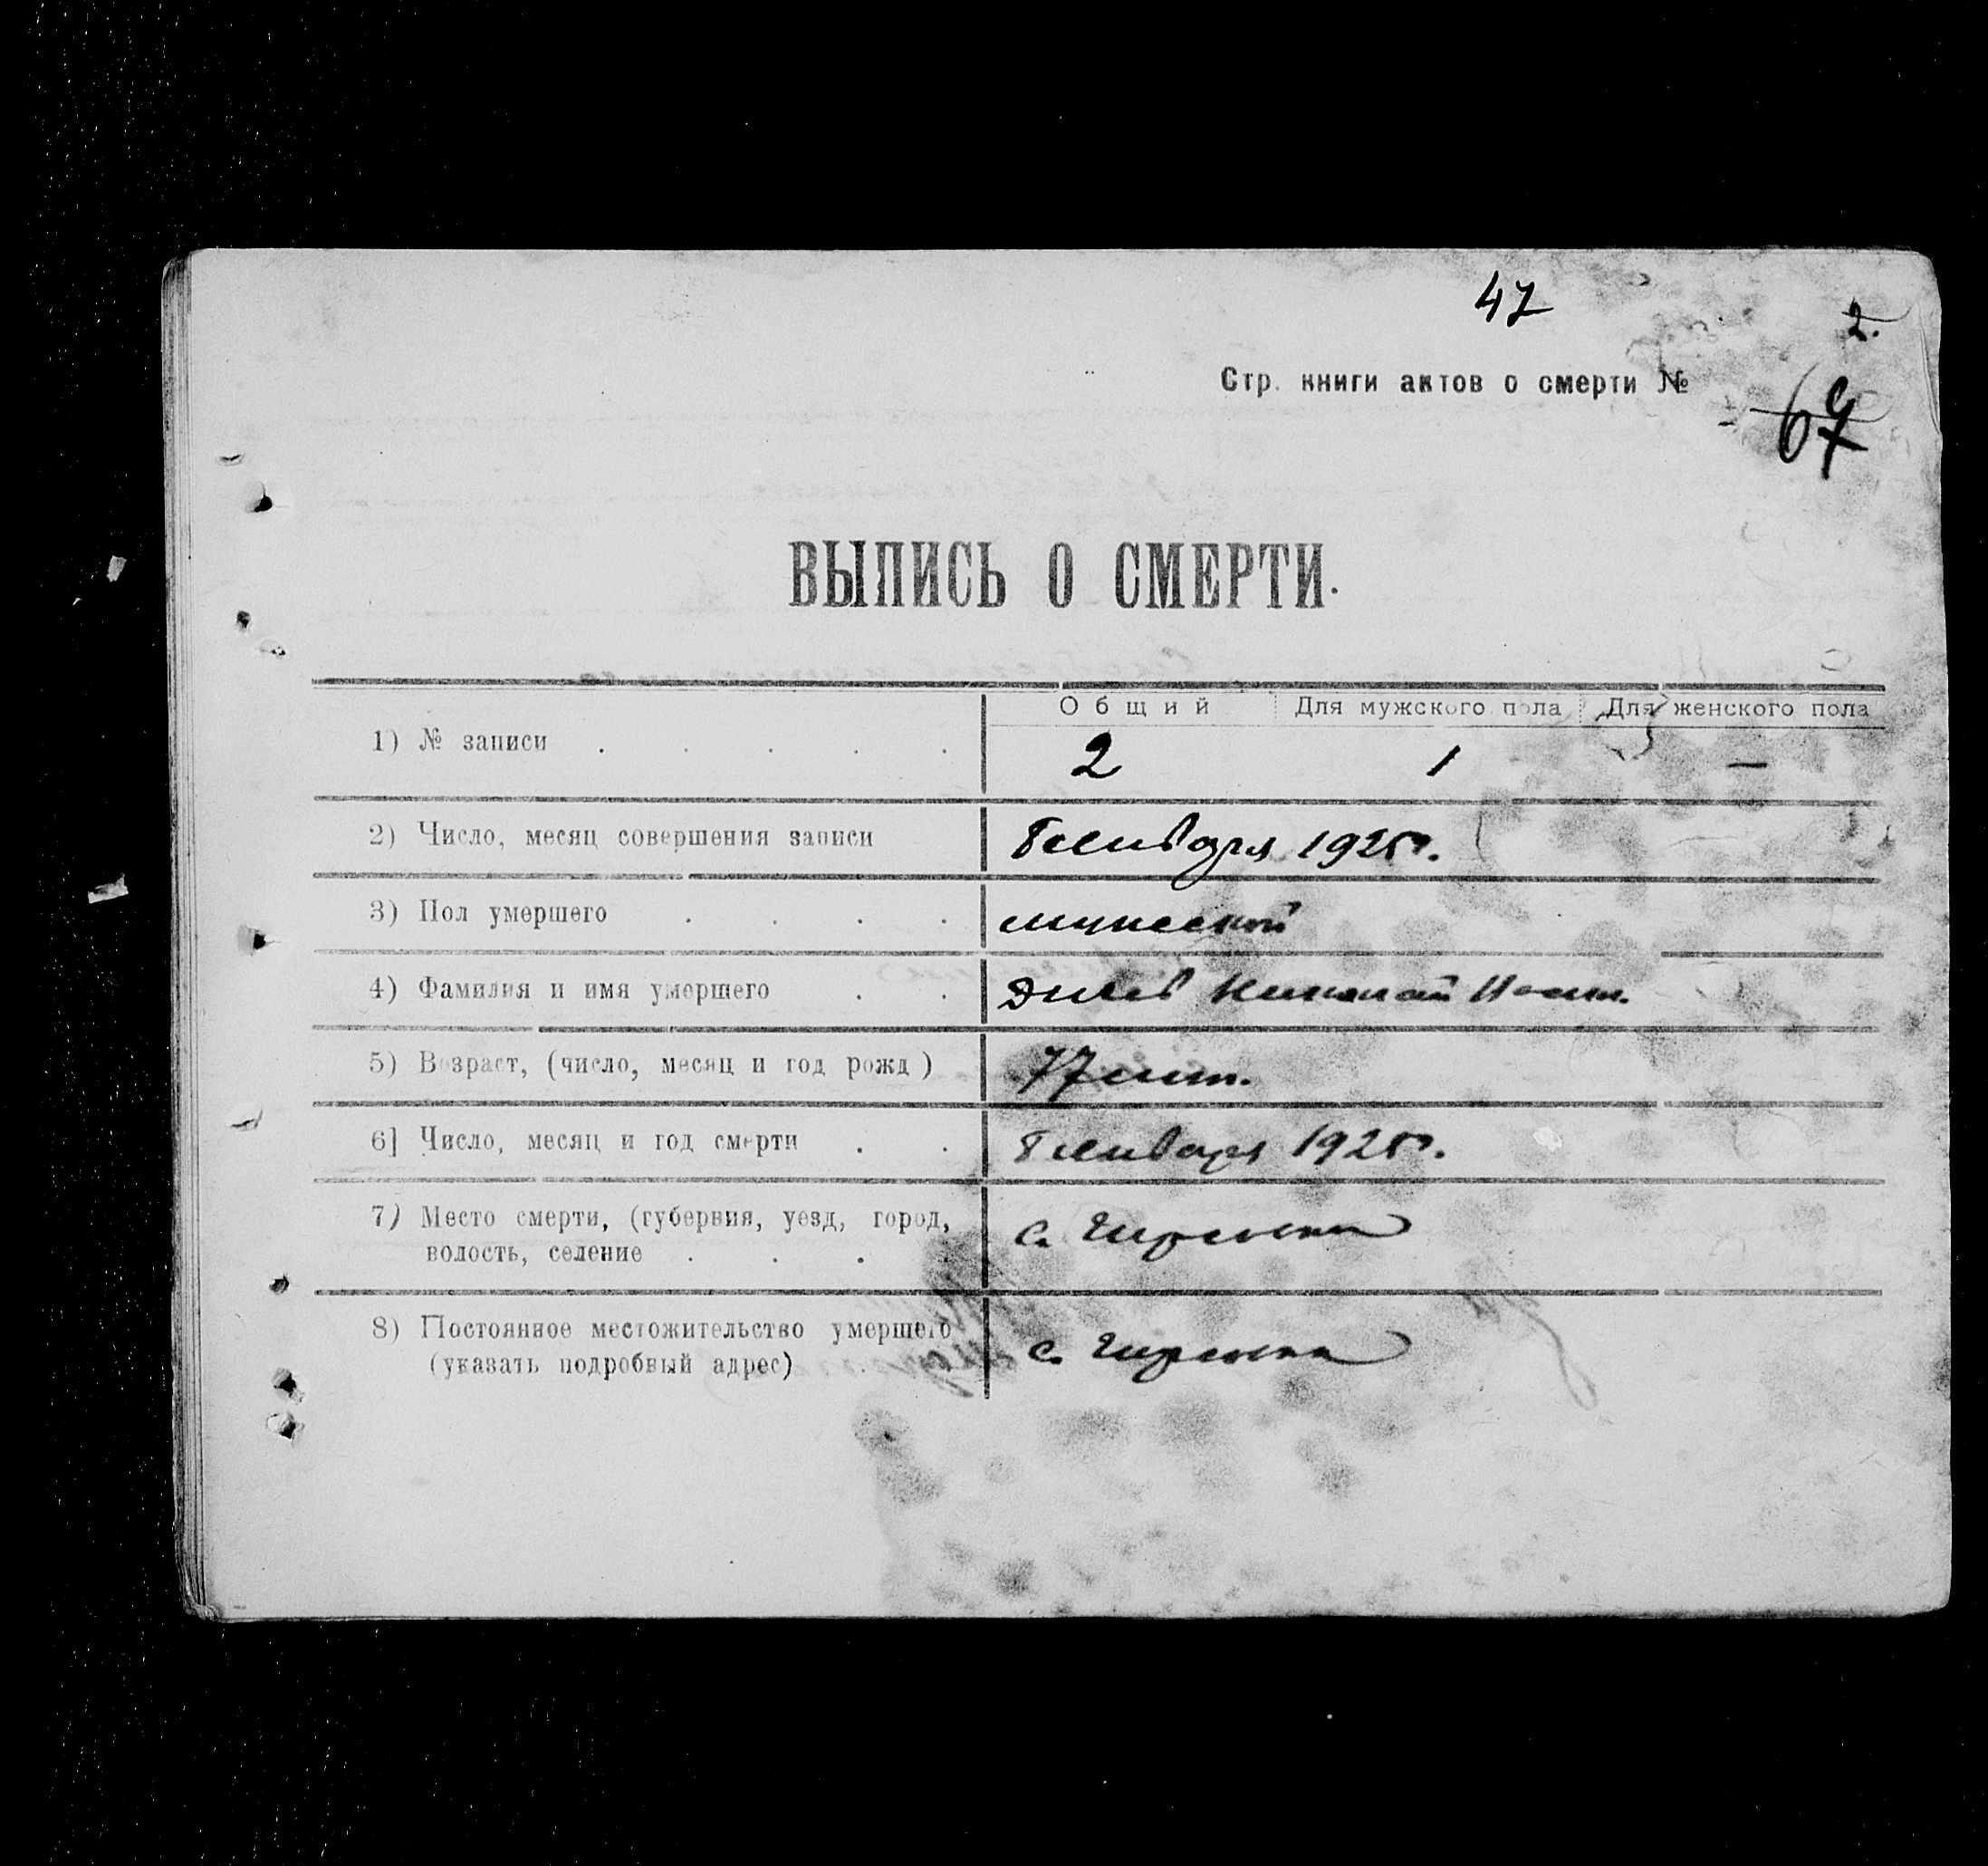 47
2.
Стр. книги актов о смерти №
69
ВЫПИСЬ О СМЕРТИ.
Общий Для мужского пола Для женского пола
1) № записи . . . . . 2 1 —
2) Число, месяц совершения записи января 1925г.
3) Пол умершего . . . . мужеской
4) Фамилия и имя умершего . . Николай
5) Возраст, (число, месяц и год рожд) 77 лет.
6] Число, месяц и год смерти . . января 1925г.
7) Место смерти, (губерния, уезд, город,
волость, селение . . . . с.
8) Постоянное местожительство умершего
(указать подробный адрес) . с.